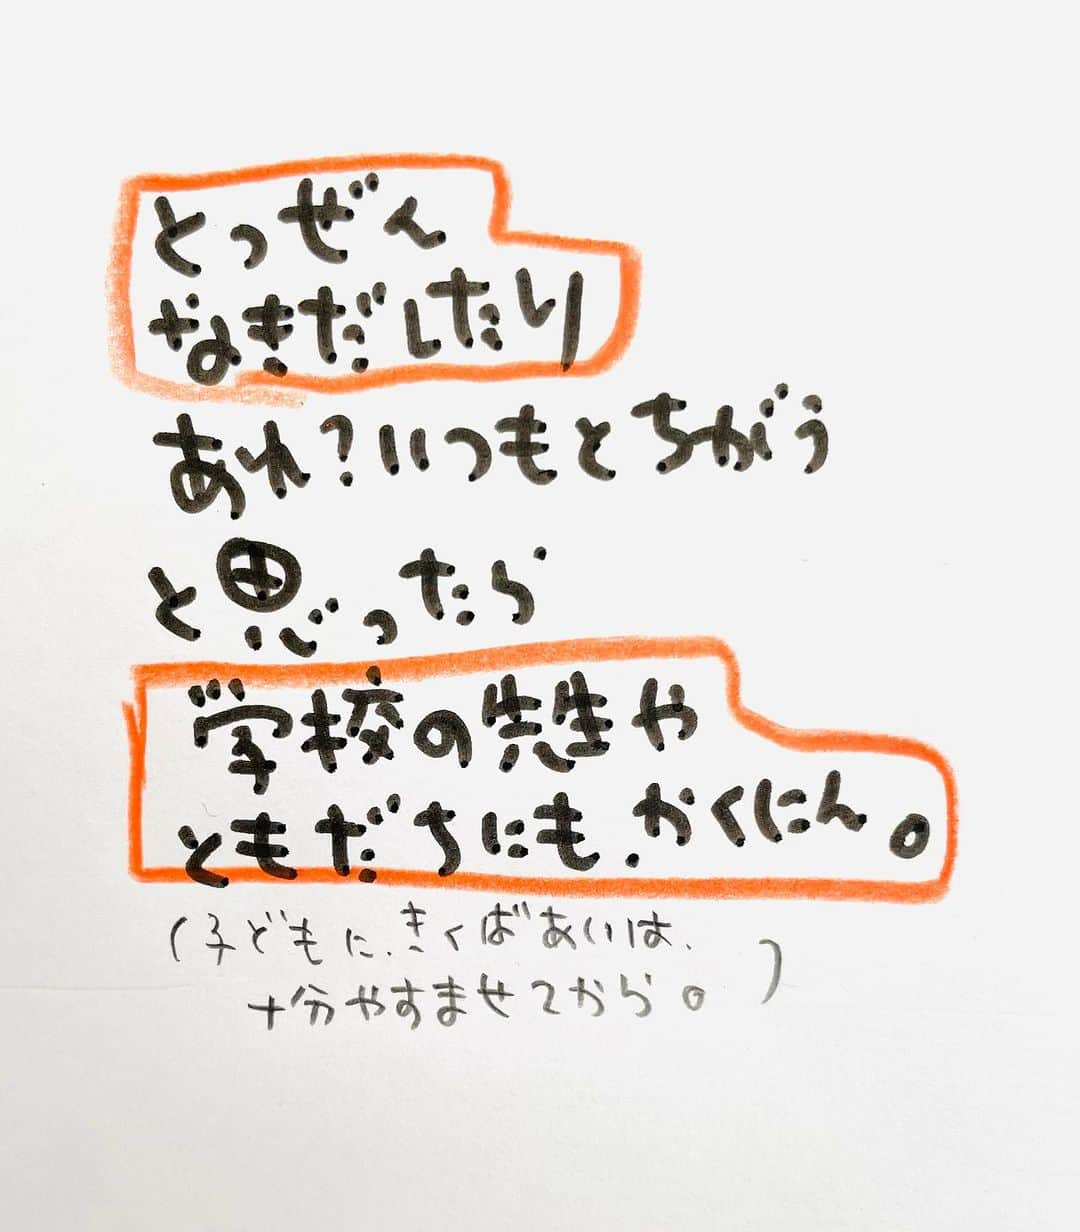 とつぜん
なきだしたり
あれ？いつもとちがう
と思ったら
学校の先生や
ともだちにも、かくにん。
（子どもに、きくばあいは、
十分やすませてから。）